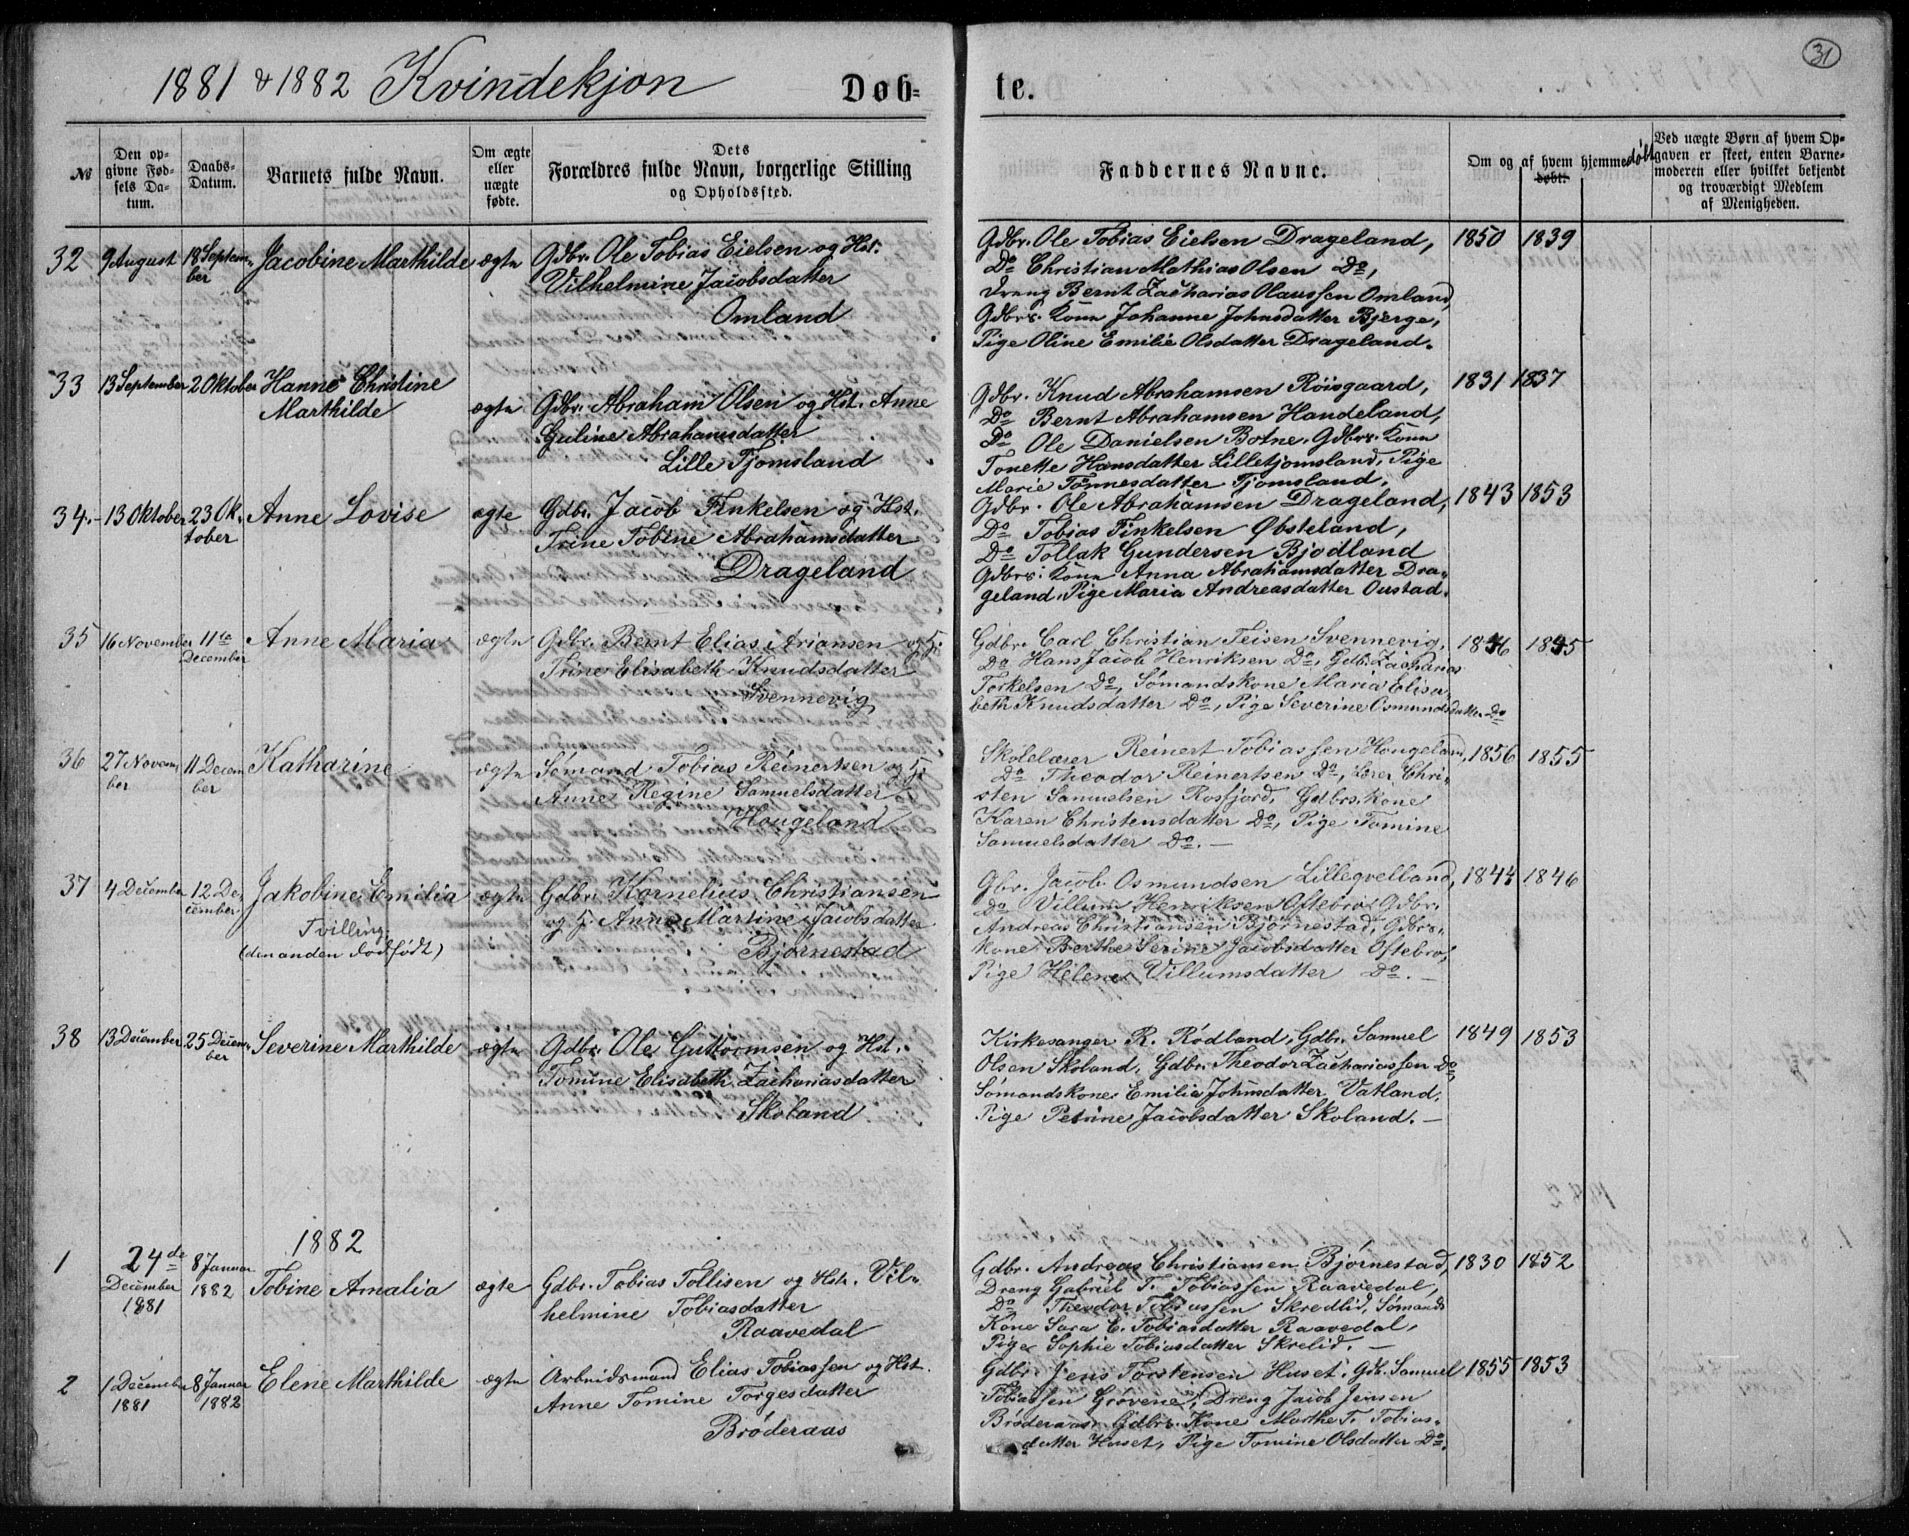 31
1881 & 1882 Kvindekjøn Døb= te.
№
Den op-
givne Fød-
sels Da-
tum.
Daabs-
Datum.
Barnets fulde Navn.
Om ægte
eller
uægte
fødte.
Dets
Forældres fulde Navn, borgerlige Stilling
og Opholdssted.
Faddernes Navne.
Om og af hvem hjemmedøbt
døbt.
Ved uægte Børn af hvem Op-
gaven er skeet, enten Barne-
moderen eller hvilket bekjendt
og troværdigt Medlem
af Menigheden.
32
9 August
18 Septem-
ber
Jacobine Marthilde
ægte
Gdbr. Ole Tobias Eielsen og Hst.
Vilhelmine Jacobsdatter
Omland
Gdbr. Ole Tobias Eielsen Drageland,
Do Christian Mathias Olsen Do,
Dreng Bernt Zacharias Olaussen Omland,
Gdbrs. Kone Johanne Johnsdatter Bjerge,
Pige Oline Emilie Olsdatter Drageland.
1850 1839
33
13 September
2 Oktober
Hanne Christine
Marthilde
ægte
Gdbr. Abraham Olsen og Hst. Anne
Guline Abrahamsdatter
Lille Tjomsland
Gdbr. Knud Abrahamsen Röisgaard,
Do Bernt Abrahamsen Haudeland,
Do Ole Danielsen Botne, Gdbrs. Kone
Tonette Hansdatter Lilletjomsland, Pige
Marie Tönnesdatter Tjomsland.
1831 1837
34.
13 Oktober
23 Ok-
tober
Anne Lovise
ægte
Gdbr. Jacob Finkelsen og Hst.
Trine Tobine Abrahamsdatter
Drageland
Gdbr. Ole Abrahamsen Drageland,
Do Tobias Finkelsen Øbsteland,
Do Tollak Gundersen Bjodland
Gdbrs. Kone Anna Abrahamsdatter Dra-
geland, Pige Maria Andreasdatter Oustad.
1843 1853
35
16 November
11te
December
Anne Maria
ægte
Gdbr. Bernt Elias Ariansen og H.
Trine Elisabeth Knudsdatter
Svennevig
Gdbr. Carl Christian Teisen Svennevig,
Do Hans Jacob Henriksen Do, Gdb. Zacharias
Torkelsen Do, Sømandskone Maria Elisa-
beth Knudsdatter Do, Pige Severine Osmundsdatter Do
36
27 Novem-
ber
11 Decem-
ber
Katharine
ægte
Sømand Tobias Reinertsen og H.
Anne Regine Samuelsdatter
Hougeland
Skolelærer Reinert Tobiassen Hougeland,
Do Theodor Reinertsen Do, Lærer Chri-
sten Samuelsen Rosfjord, Gdbrs. kone
Karen Christensdatter Do, Pige Tomine
Samuelsdatter Do. —
1856 1855
37
4 December
12 De-
cember
Jakobine Emilia
Tvilling
(den anden dødfødt)
ægte
Gdbr. Kornelius Christiansen
og H. Anne Martine Jacobsdatter
Bjørnestad
Gbr. Jacob Osmundsen Lillegvelland,
Do Villum Henriksen Oftebro, Gdbr.
Andreas Christiansen Bjørnestad, Gdbrs.
kone Berthe Serine Jacobsdatter Oftebro,
Pige Helene Villumsdatter Do. —
1844 1846
38
13 December
25 Decem-
ber
Severine Marthilde
ægte
Gdbr. Ole Guttormsen og Hst.
Tomine Elisabeth Zachariasdatter
Skoland
Kirkesanger R. Rødland, Gdbr. Samuel
Olsen Skoland, Gdbr. Theodor Zachariassen Do,
Sømandskone Emilie Johnsdatter Vatland,
Pige Petrine Jacobsdatter Skoland. —
1849 1853
1882
1
24de
December
1881
8 Januar
1882
Tobine Amalia
ægte
Gdbr. Tobias Tollisen og Hst. Vil-
helmine Tobiasdatter
Raavedal
Gdbr. Andreas Christiansen Bjørnestad,
Dreng Gabriel T. Tobiassen Raavedal,
Do Theodor Tobiassen Skredlid, Sømands
Kone Sara E. Tobiasdatter Raavedal,
Pige Sophie Tobiasdatter Skrelid. —
1830 1852
2
1 December
1881
8 Januar
1882
Elene Marthilde
ægte
Arbeidsmand Elias Tobiassen og Hst.
Anne Tomine Torgesdatter
Brøderaas
Gdbr. Jens Torstensen Huset, Gdb. Samuel
Tobiassen Grövene, Dreng Jacob Jensen
Brøderaas, Gdbrs. Kone Marthe T. Tobias-
datter Huset, Pige Tomine Olsdatter Do.
1855 1853